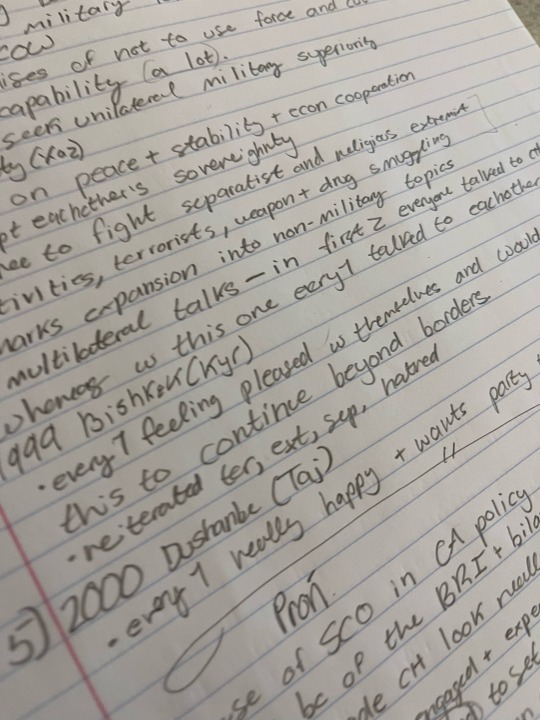 military
cow
ises of not to use force and cut
capability (a lot).
seek unilateral military superiority
ty (Kaz)
on peace + stability + econ cooperation
pt eachother's sovereighnty
nee to fight separatist and religious extremist
tivities, terrorists, weapon + drug smuggling
marks expansion into non-military topics
multilateral talks - in first 2 everyone talked to
whereas w this one every1 talked to eachother
1999 Bishkek (Kyr)
• every1 feeling pleased w themselves and would
this to continue beyond borders
• reiterated ter, ext, sep, hatred
5) 2000 Dushanbe (Taj)
• every1 really happy + wants party
"
Pron.
use of SCO in CA policy
bc of the BRI + bila
de CH look really
engaged + expe
to set